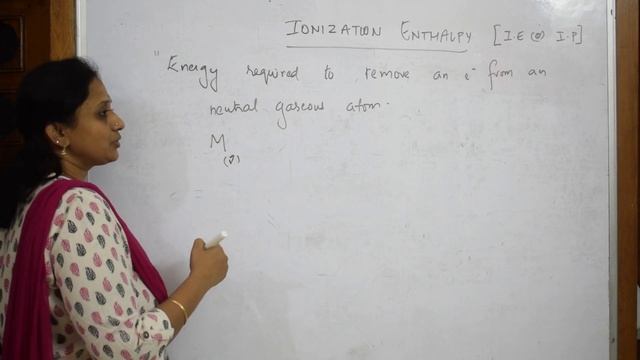 IONIZATION ENTHALPY [I.E (or) I.P]
" Energy required to remove an e⁻ from an
neutral gaseous atom.
M(g)